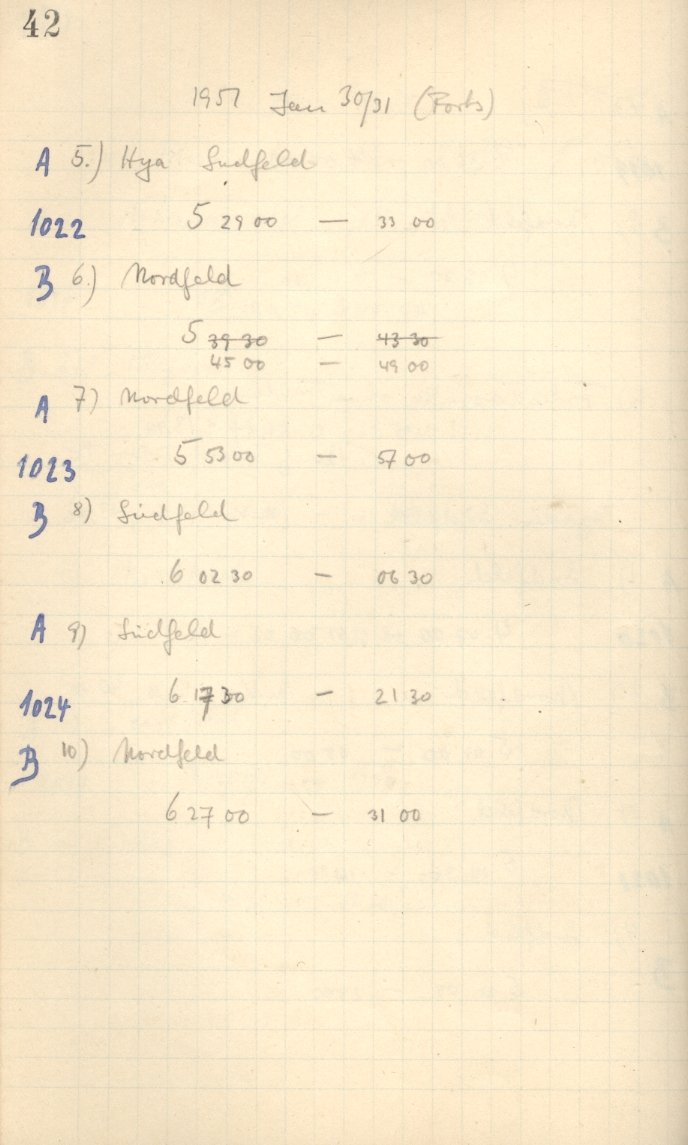 42
1957 Jan 30/31 (Forts)
A 5.) Hya Südfeld
1022 5 29 00 — 33 00
B 6.) Nordfeld
5 39 30 — 43 30
45 00 — 49 00
A 7) Nordfeld
1023 5 53 00 — 57 00
B 8) Südfeld
6 02 30 — 06 30
A 9) Südfeld
1024 6 17 30 — 21 30
B 10) Nordfeld
6 27 00 — 31 00